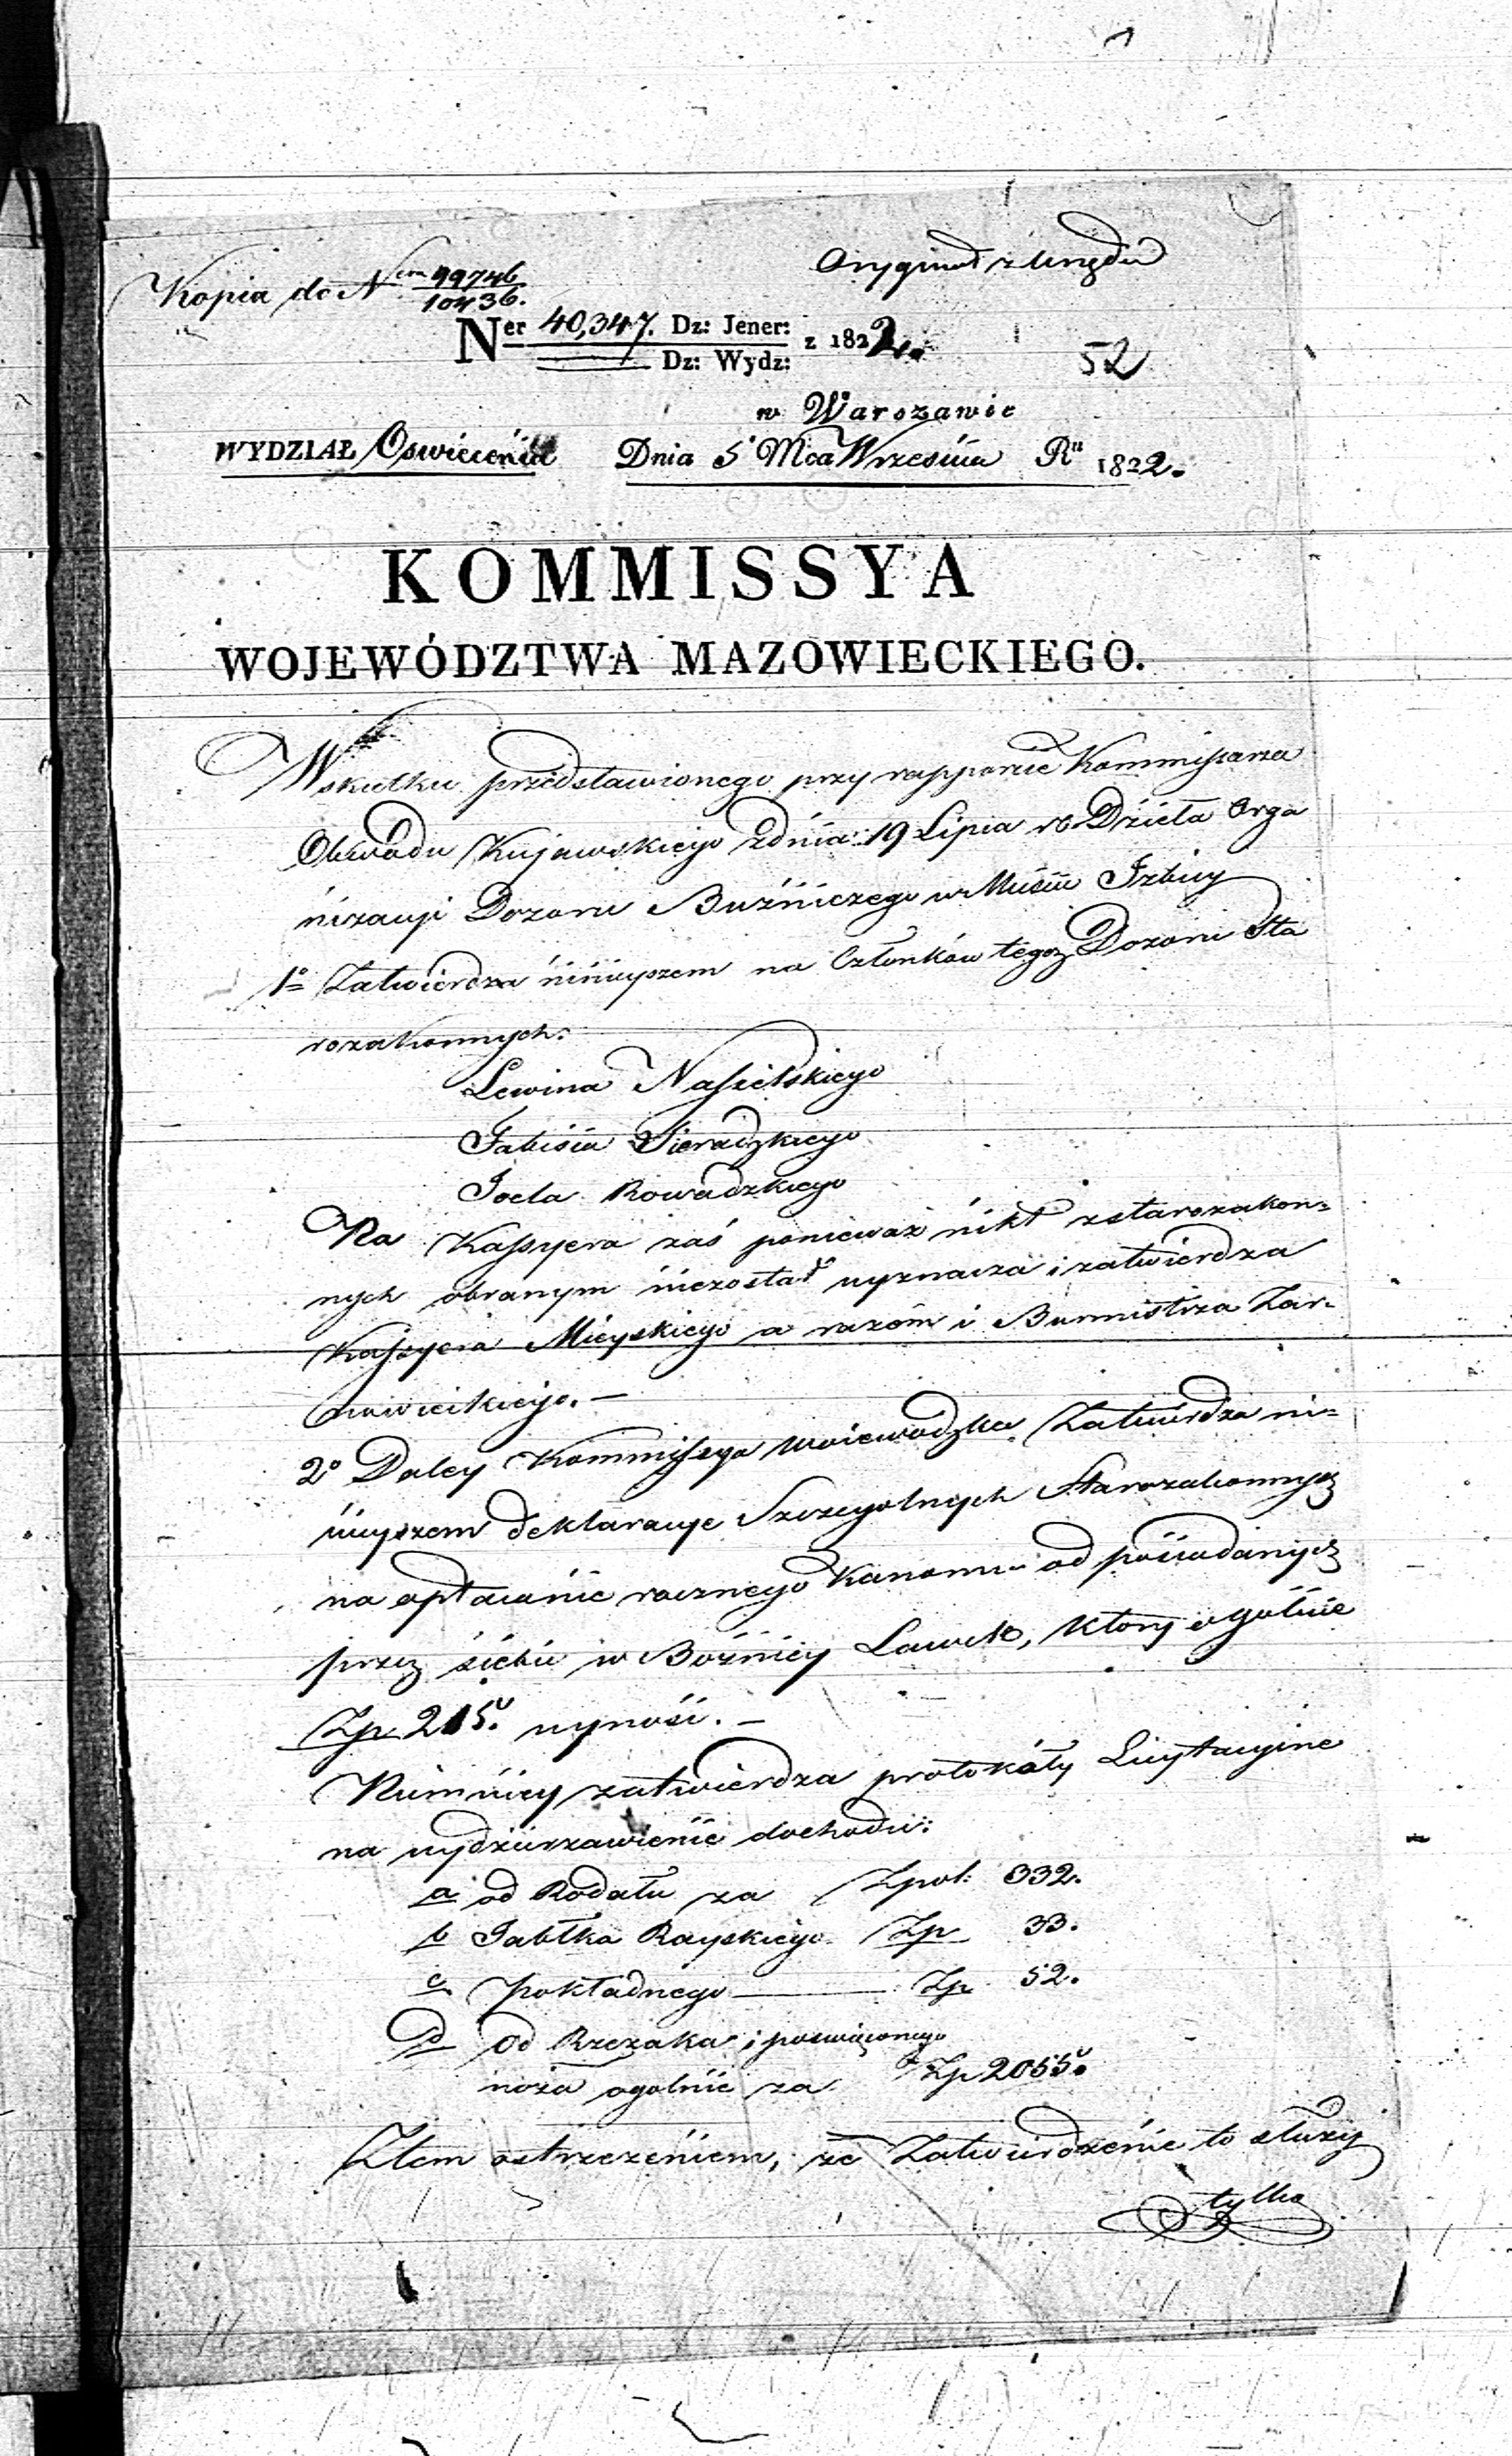 Kopia do Nrem 99746
10436.
Oryginał z Urzędu
Ner 40,347. Dz: Jener: z 1822.
Dz: Wydz:
52
w Warszawie
WYDZIAŁ Oswiecenia Dnia 5 Mca Wrzesnia Ru 1822.
KOMMISSYA
WOJEWÓDZTWA MAZOWIECKIEGO.
Wskutku przedstawionego przy rapporcie Kommissarza
Obwodu Kujawskiego z dnia 19 Lipca rb Dzieła Orga
nizacyi Dozoru Bużniczego w Miescie Izbicy
1o Zatwierdza ninieyszem na Członków tegoz Dozoru Sta
rozakonnych:
Lewina Naszielskiego
Fabisia Sieradzkiego
Joela Kowadzkiego
Na Kassyera zaś ponieważ nikt z starozakon=
nych obranym niezostał wyznacza i zatwierdza
Kassyera Mieyskiego a razem i Burmistrza Zar=
nowieckiego.—
2o Daley Kommissya Woiewodzka Zatwierdza ni=
nieyszem deklaracye Szczegolnych Starozakonnych
na opłacanie rocznego Kanonu od posiadanych
przez siebie w Bożnicy Lawek, ktory ogolnie
Zp 215. wynosi.—
Niemniey zatwierdza protokóły Licytacyine
na wydzierzawienie dochodu:
a od Rodału za Zpol: 332.
b Jabłka Rayskiego Zp 33.
c pokładnego — Zp 52.
d Od Rzezaka i poswięconego
noża ogolnie za Zp 2055.
Z tem ostrzezeniem, ze Zatwierdzenie to służy
tylko